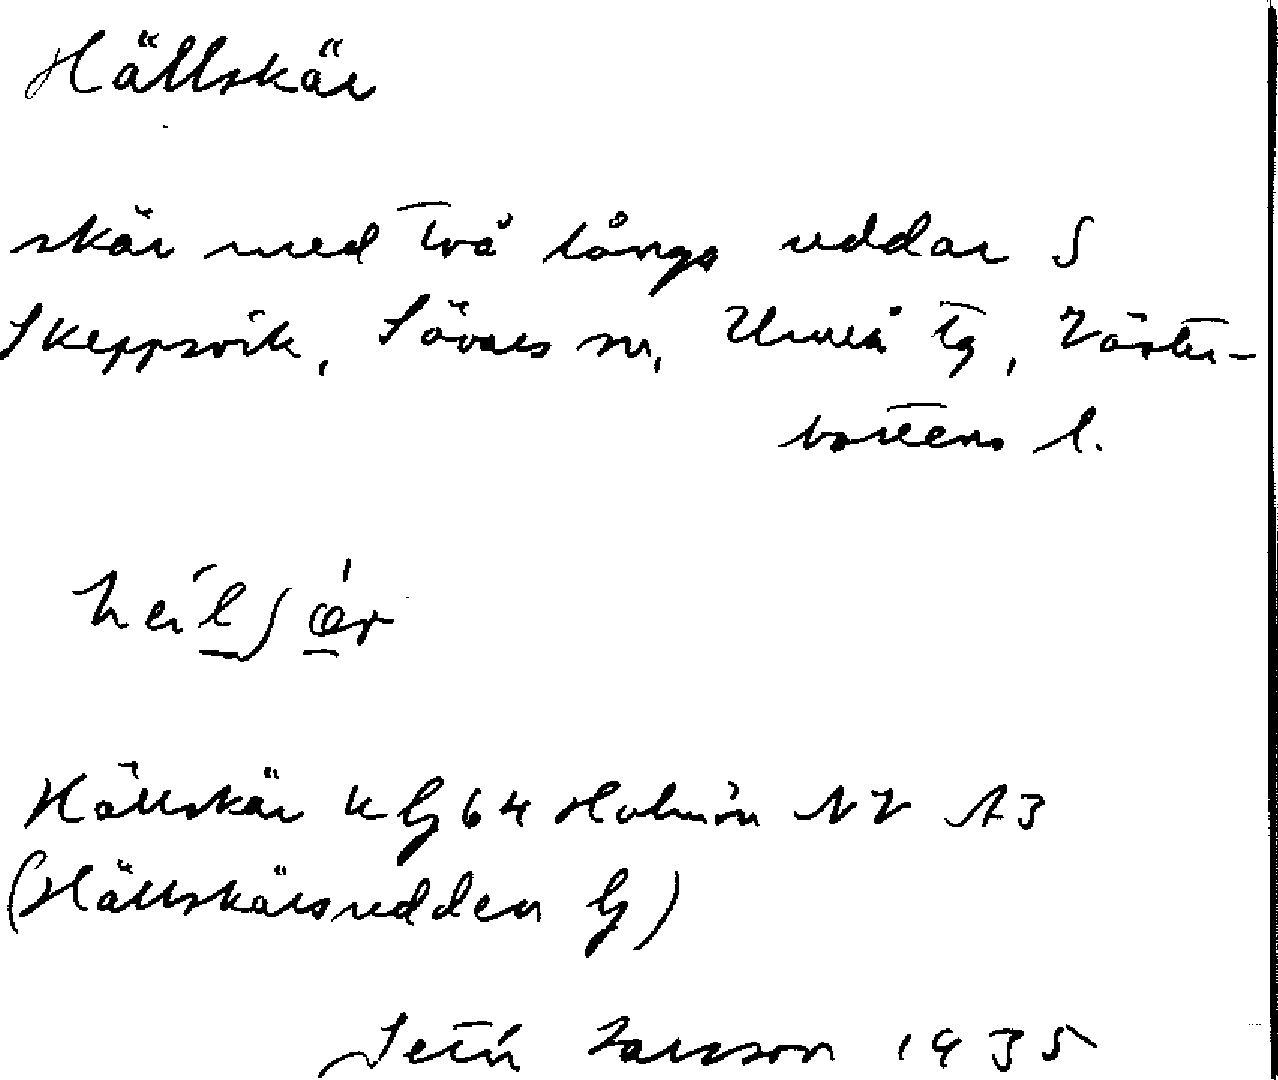 Hällskär
skär med två långa uddar S
Skeppsvik, Sävars sn, Umeå tg, Väster-
bottens l.
Hällskär k Gj 64 Holmön NV A3
(Hällskärsudden Gj)
Setin Larsson 1935